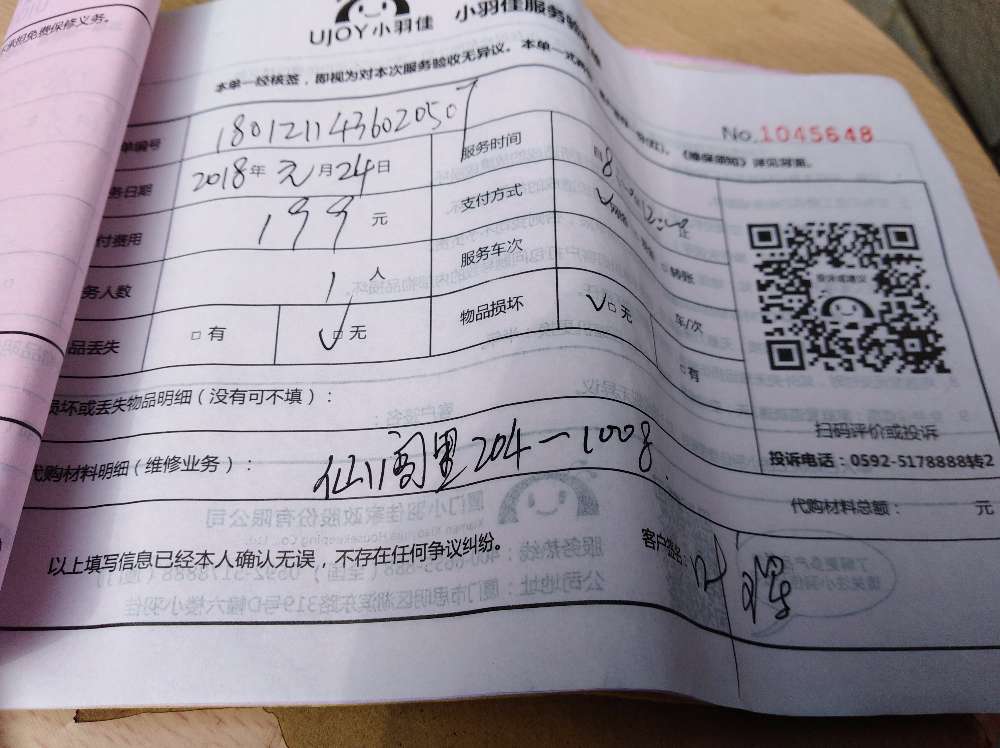 不承担免费保修义务。
UJOY小羽佳 小羽佳服务验
本单一经核签，即视为对本次服务验收无异议。本单一式
No.1045648
单编号 1801211436020507
服务时间 自8
务日期 2018年元月24日
支付方式
付费用 199元
转账
服务车次 车/次
务人数 1人
品丢失 □有 ✓□无
物品损坏 ✓□无 □有
投诉或建议
扫码评价或投诉
投诉电话：0592-5178888转2
损坏或丢失物品明细（没有可不填）：
代购材料明细（维修业务）：仙阁里204-1008
代购材料总额： 元
以上填写信息已经本人确认无误，不存在任何争议纠纷。
客户签名：